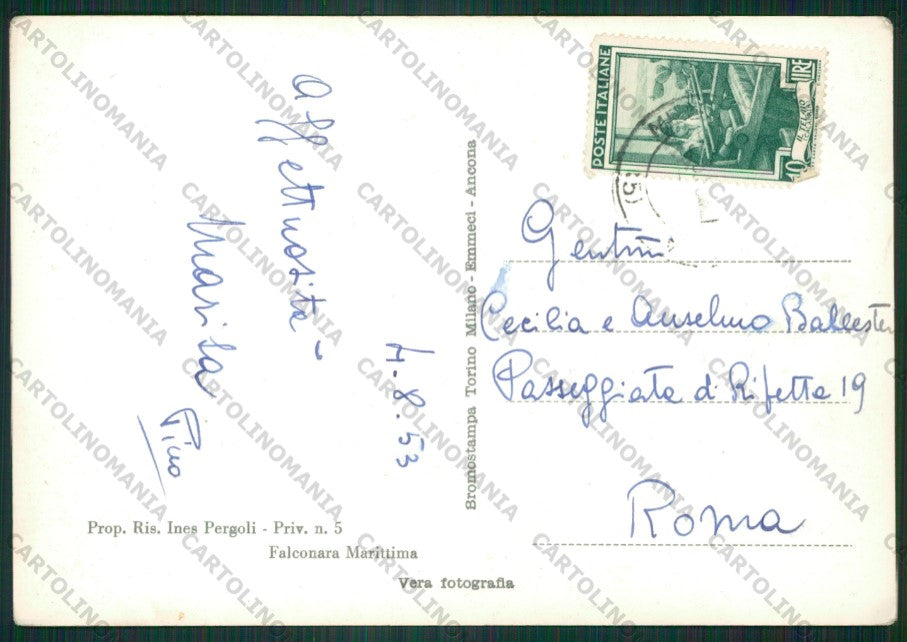 affettuosità
Marisa
Pino
4.8.53
Prop. Ris. Ines Pergoli - Priv. n. 5
Falconara Marittima
Vera fotografia
Bromostampa Torino Milano - Emmeci - Ancona
POSTE ITALIANE
LIRE
10
Gentmi
Cecilia e Anselmo Ballester
Passeggiata di Ripetta 19
Roma
CARTOLINOMANIA